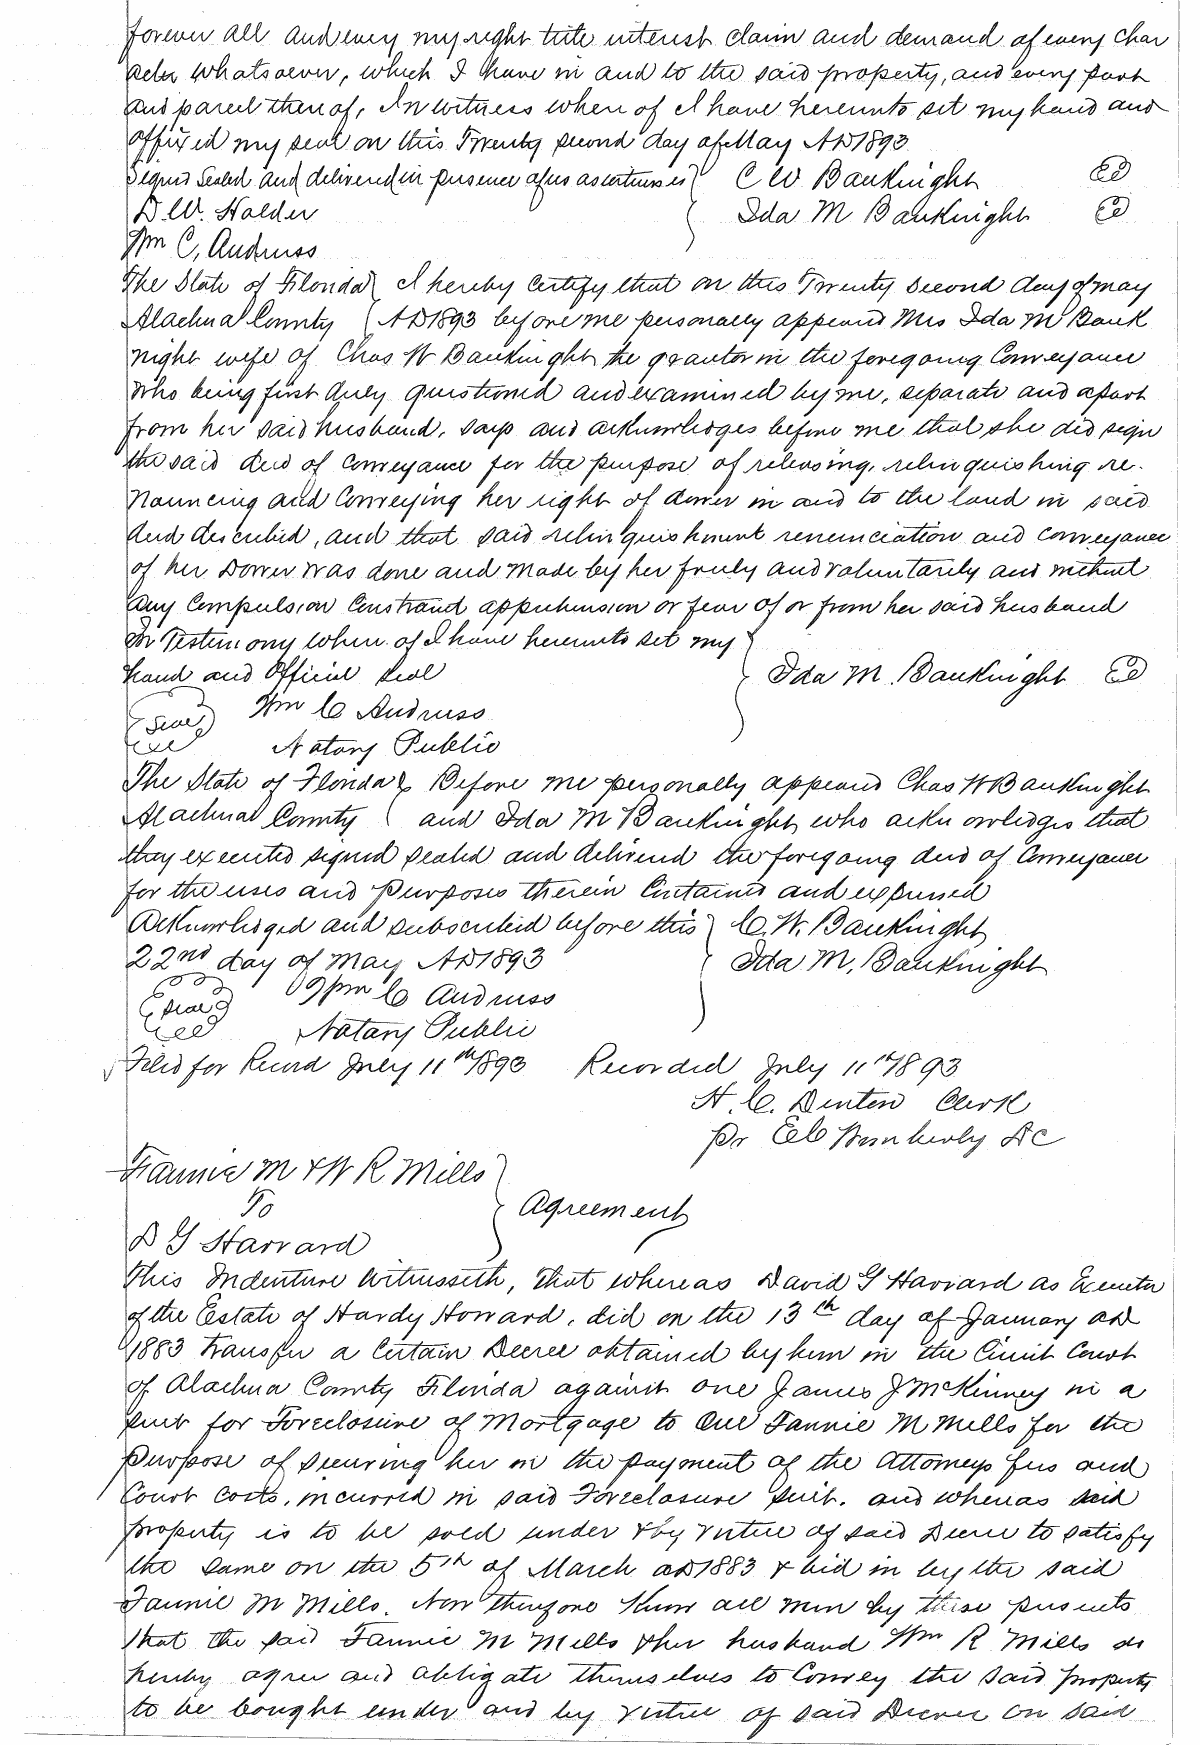 forever all and every my right title interest claim and demand of every char
acter whatsoever, which I have in and to the said property, and every part
and parcel thereof, In witness where of I have hereunto set my hand and
affixed my seal on this Twenty second day of May AD1893
Signed Sealed and delivered in presence of us as witnesses C W Bauknight
D. W. Holder Ida M Bauknight
Wm C, Andruss
The State of Florida I hereby Certify that on this Twenty Second day of may
Alachua County AD1893 before me personally appeared Mrs Ida M Bauk
night wife of Chas W Bauknight the grantor in the foregoing Conveyance
who being first duly questioned and examined by me, separate and apart
from her said husband, says and acknowledges before me that she did sign
the said deed of conveyance for the purpose of releasing, relinquishing re-
nouncing and Conveying her right of dower in and to the land in said
deed described, and that said relinquishment renunciation and conveyance
of her Dower was done and made by her freely and voluntarily and without
any Compulsion Constraint apprehension or fear of or from her said husband
In Testimony where of I have hereunto set my
hand and Official seal Ida M. Bauknight
Seal Wm C Andruss
Notary Public
The State of Florida Before me personally appeared Chas W Bauknight
Alachua County and Ida M Bauknight who acknowledges that
they executed signed sealed and delivered the foregoing deed of Conveyance
for the uses and Purposes therein Contained and expressed
Acknowledged and subscribed before this C. W. Bauknight
22nd day of May AD1893 Ida M, Bauknight
Seal Wm C Andruss
Notary Public
Filed for Record July 11th 1893 Recorded July 11th 1893
H. C. Denton Clerk
Pr E C Wimberly DC
Fannie M & W R Mills
To Agreement
D G Harvard
This Indenture Witnesseth, That whereas David G Harvard as Executor
of the Estate of Hardy Howard, did on the 13th day of January AD
1883 Transfer a Certain Decree obtained by him in the Circuit Court
of Alachua County Florida against one James J McKinney in a
suit for Foreclosure of Mortgage to One Fannie M Mills for the
purpose of securing her in the payment of the Attorneys fees and
Court Costs, incurred in said Foreclosure Suit. and whereas said
property is to be sold under & by virtue of said Decree to satisfy
the same on the 5th of March AD1883 & bid in by the said
Fannie M Mills. Now Therefore Know all men by these presents
that the said Fannie M Mills & her husband Wm R Mills do
hereby agree and obligate themselves to Convey the said property
to be bought under and by virtue of said Decree on said